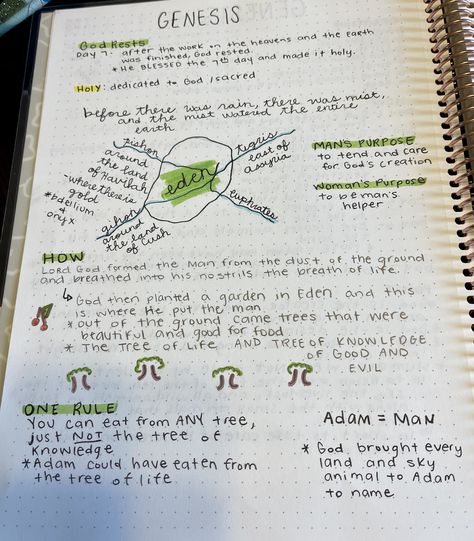 GENESIS
God Rests
Day 7: after the work on the heavens and the Earth
was finished, God rested.
* He BLESSED the 7th day and made it holy.
Holy: dedicated to God/sacred
before there was rain, there was mist,
and the mist watered the entire
earth.
pishon
around
the land
of Havilah
-where there is
gold
* bdellium
&
onyx
tigris
east of
assyria
eden
gihon
around
the land
of Cush
euphrates
MAN'S PURPOSE
to tend and care
for God's creation
Woman's Purpose
to be man's
helper
HOW
LORD GOD formed the man from the dust of the ground
and breathed into his nostrils the breath of life.
↳ God then planted a garden in Eden and this
is where He put the man
* out of the ground came trees that were
beautiful and good for food
* The Tree of Life AND TREE OF KNOWLEDGE
OF GOOD AND
EVIL
ONE RULE
You can eat from ANY tree,
just NOT the tree of
knowledge
* Adam could have eaten from
the tree of life
Adam = Man
* God brought every
land and sky
animal to Adam
to name